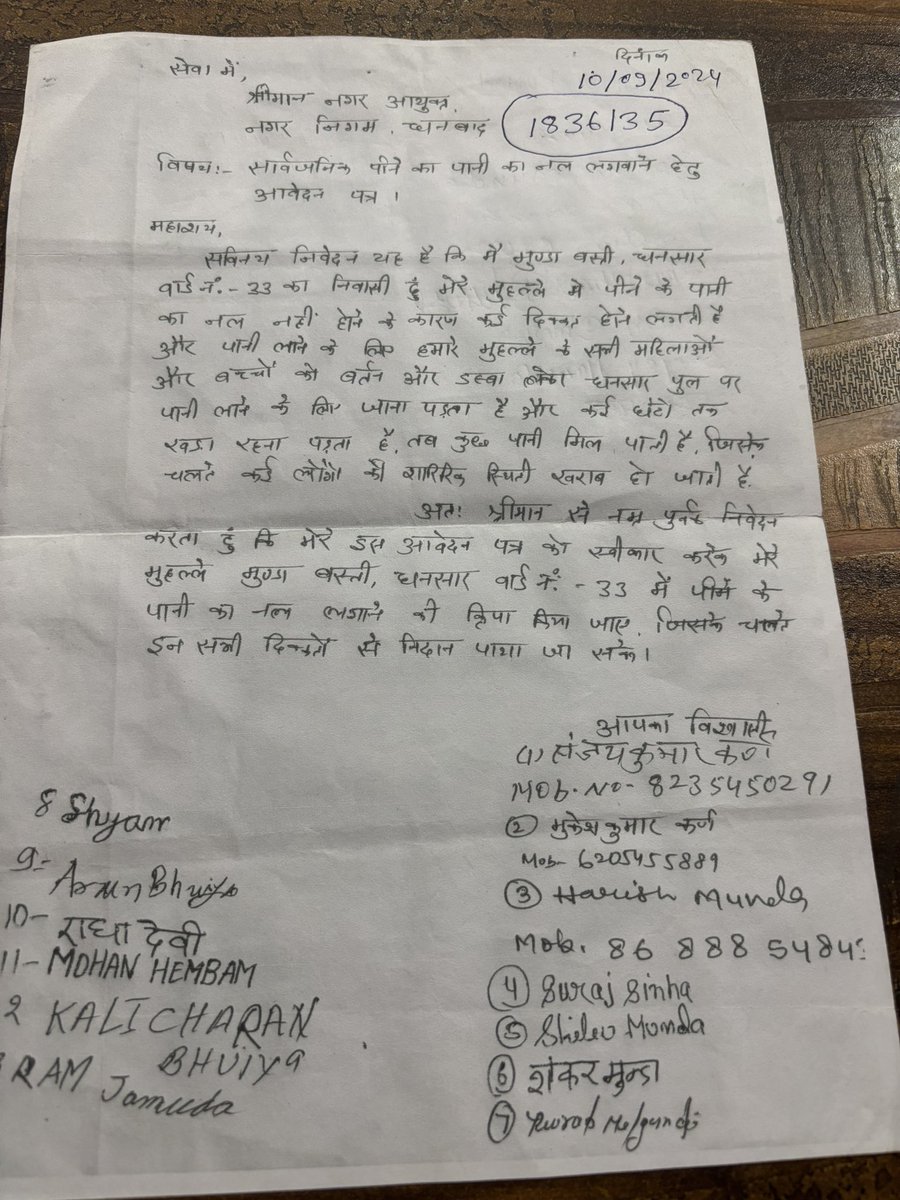 सेवा में,
दिनांक
10/09/2024
श्रीमान नगर आयुक्त,
नगर निगम, धनबाद
1836135
विषय:- सार्वजनिक पीने का पानी का नल लगवाने हेतु
आवेदन पत्र ।
महाशय,
सविनय निवेदन यह है कि मैं मुण्डा बस्ती, धनसार
वार्ड नं.- 33 का निवासी हुं मेरे मुहल्ले मे पीने के पानी
का नल नहीं होने के कारण कई दिक्कत होने लगती है
और पानी लाने के लिए हमारे मुहल्ले के सभी महिलाओं
और बच्चों को बर्तन और डब्बा लेकर धनसार पुल पर
पानी लाने के लिए जाना पड़ता है और कई घंटो तक
खड़ा रहना पड़ता है, तब कुछ पानी मिल पाती है, जिसके
चलते कई लोगों की शारिरिक स्थिती खराब हो जाती है.
अतः श्रीमान से नम्र पुर्वक निवेदन
करता हुं कि मेरे इस आवेदन पत्र को स्वीकार करके मेरे
मुहल्ले मुण्डा बस्ती, धनसार वार्ड नं. - 33 में पीने के
पानी का नल लगाने की क्रिपा किया जाए, जिसके चलते
इन सभी दिक्कतों से निदान पाया जा सके।
आपका विश्वासी
(1) संजय कुमार कर्ण
Mob. No- 8235450291
② मुकेश कुमार कर्ण
Mob- 6205455889
③ Harish Munda
Mob. 86 888 5484
④ Suraj Sinha
⑤ Munda
⑥ शंकर मुन्डा
⑦
8 Shyam
9:-
Arun Bhuiya
10- राधा देवी
11- MOHAN HEMBAM
2 KALICHARAN
BHUIYA
RAM Jamuda